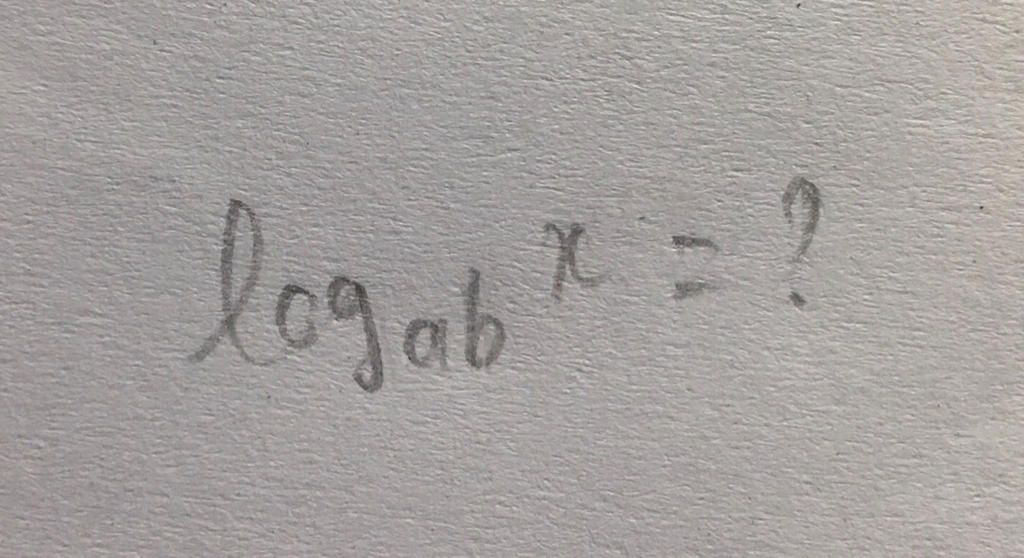 log_{ab} x = ?